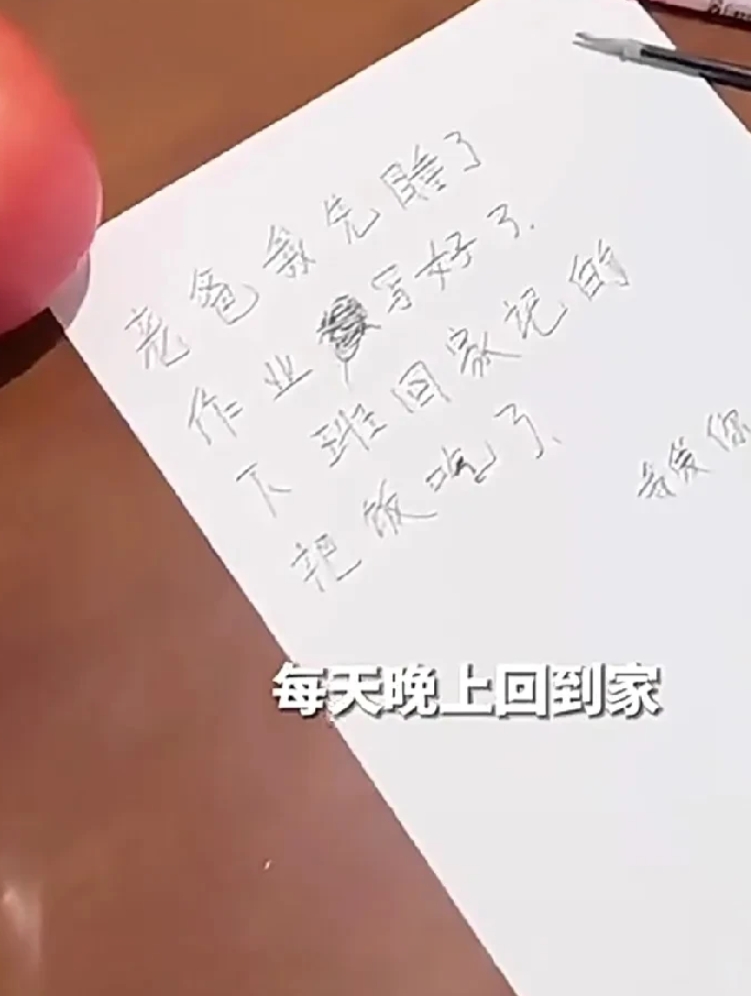 老爸我先睡了
作业写好了
下班回家记的
把饭吃了
我爱你
每天晚上回到家